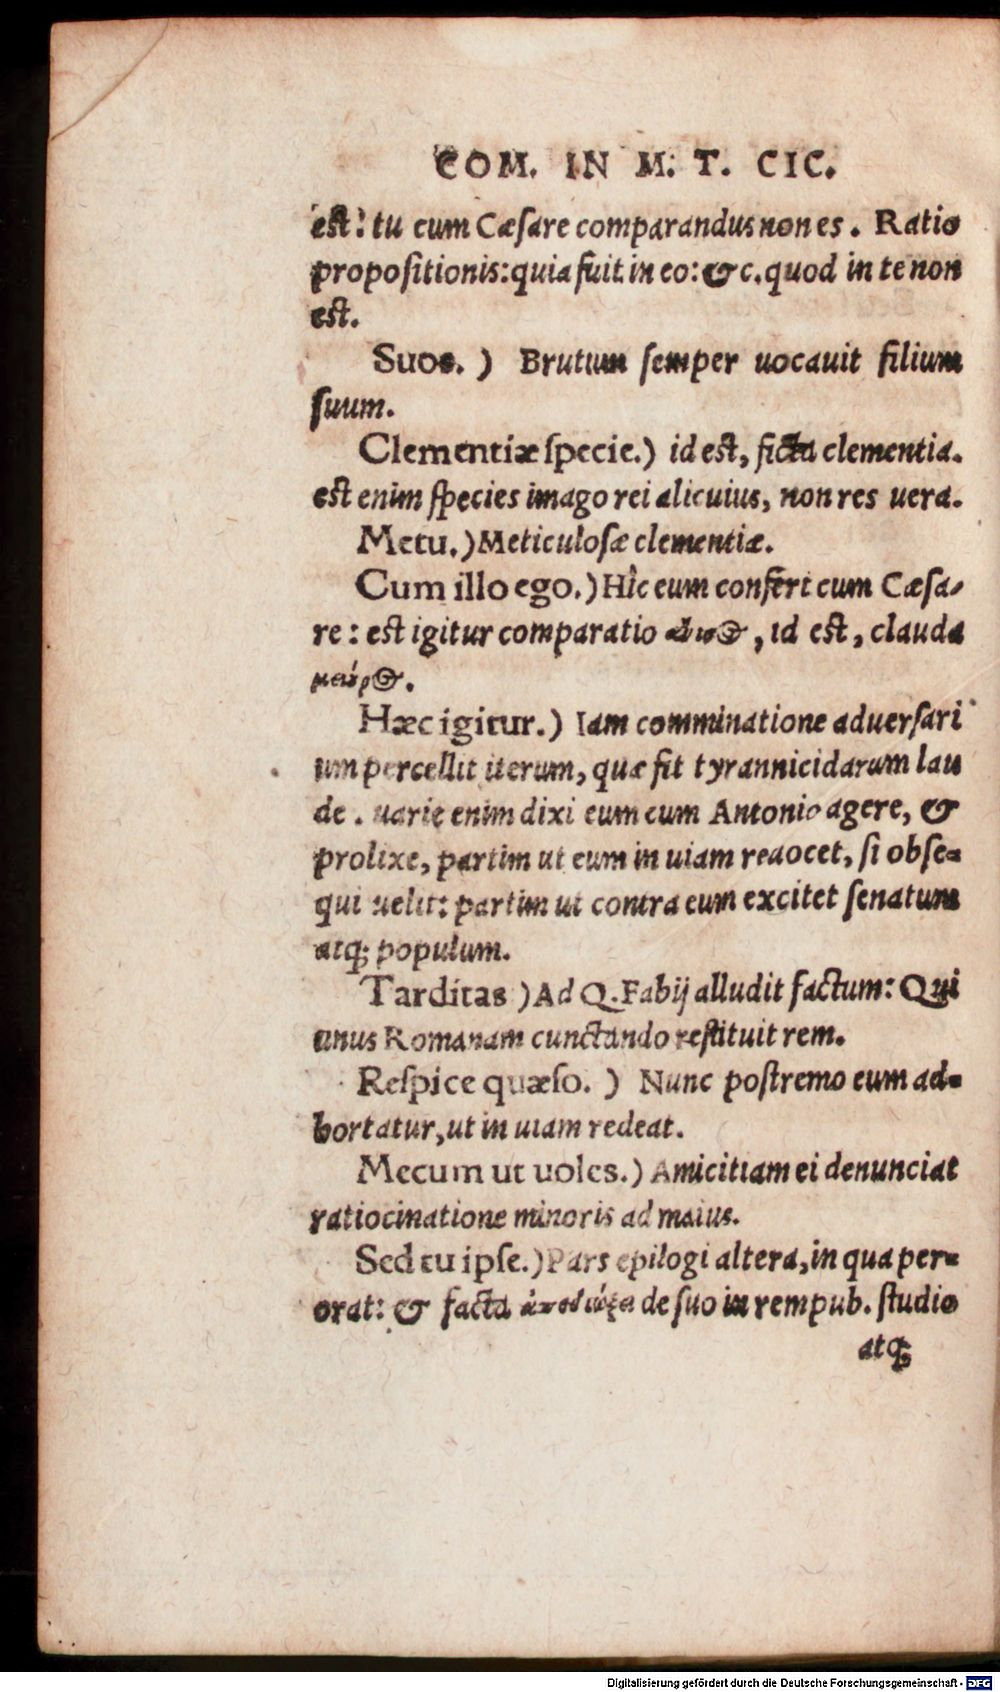 COM. IN M. T. CIC.
est: tu cum Cæsare comparandus non es. Ratio
propositionis: quia fuit in eo: & c. quod in te non
est.
Suos.) Brutum semper uocauit filium
suum.
Clementiæ specie.) id est, ficta clementia.
est enim species imago rei alicuius, non res uera.
Metu.) Meticulosæ clementiæ.
Cum illo ego.) Hîc eum confert cum Cæsa-
re: est igitur comparatio , id est, clauda
Hæc igitur.) Iam comminatione aduersari
um percellit iterum, quæ fit tyrannicidarum lau
de. uariè enim dixi eum cum Antonio agere, &
prolixe, partim ut eum in uiam reuocet, si obse-
qui uelit: partim ut contra eum excitet senatum
atq; populum.
Tarditas) Ad Q. Fabij alludit factum: Qui
unus Romanam cunctando restituit rem.
Respice quæso.) Nunc postremo eum ad-
hortatur, ut in uiam redeat.
Mecum ut uoles.) Amicitiam ei denunciat
ratiocinatione minoris ad maius.
Sed tu ipse.) Pars epilogi altera, in qua per-
orat: & facta de suo in rempub. studio
atq;
Digitalisierung gefördert durch die Deutsche Forschungsgemeinschaft - DFG